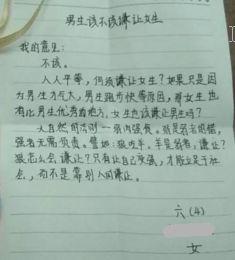 男生该不该谦让女生
我的意见:
不该。
人人平等,何须谦让女生?如果只是因
为男生力气大,男生跑步快等原因,那女生也
有比男生优秀的地方,女生也该让男生吗?
大自然的法则一弱肉强食。就是弱者明错,
强者无需负责。譬如:狼吃羊。羊是弱者,谦让?
狼怎么会谦让?只有让自己变强,才能立足于社
会,而不是靠别人的谦让。
六(4)
女